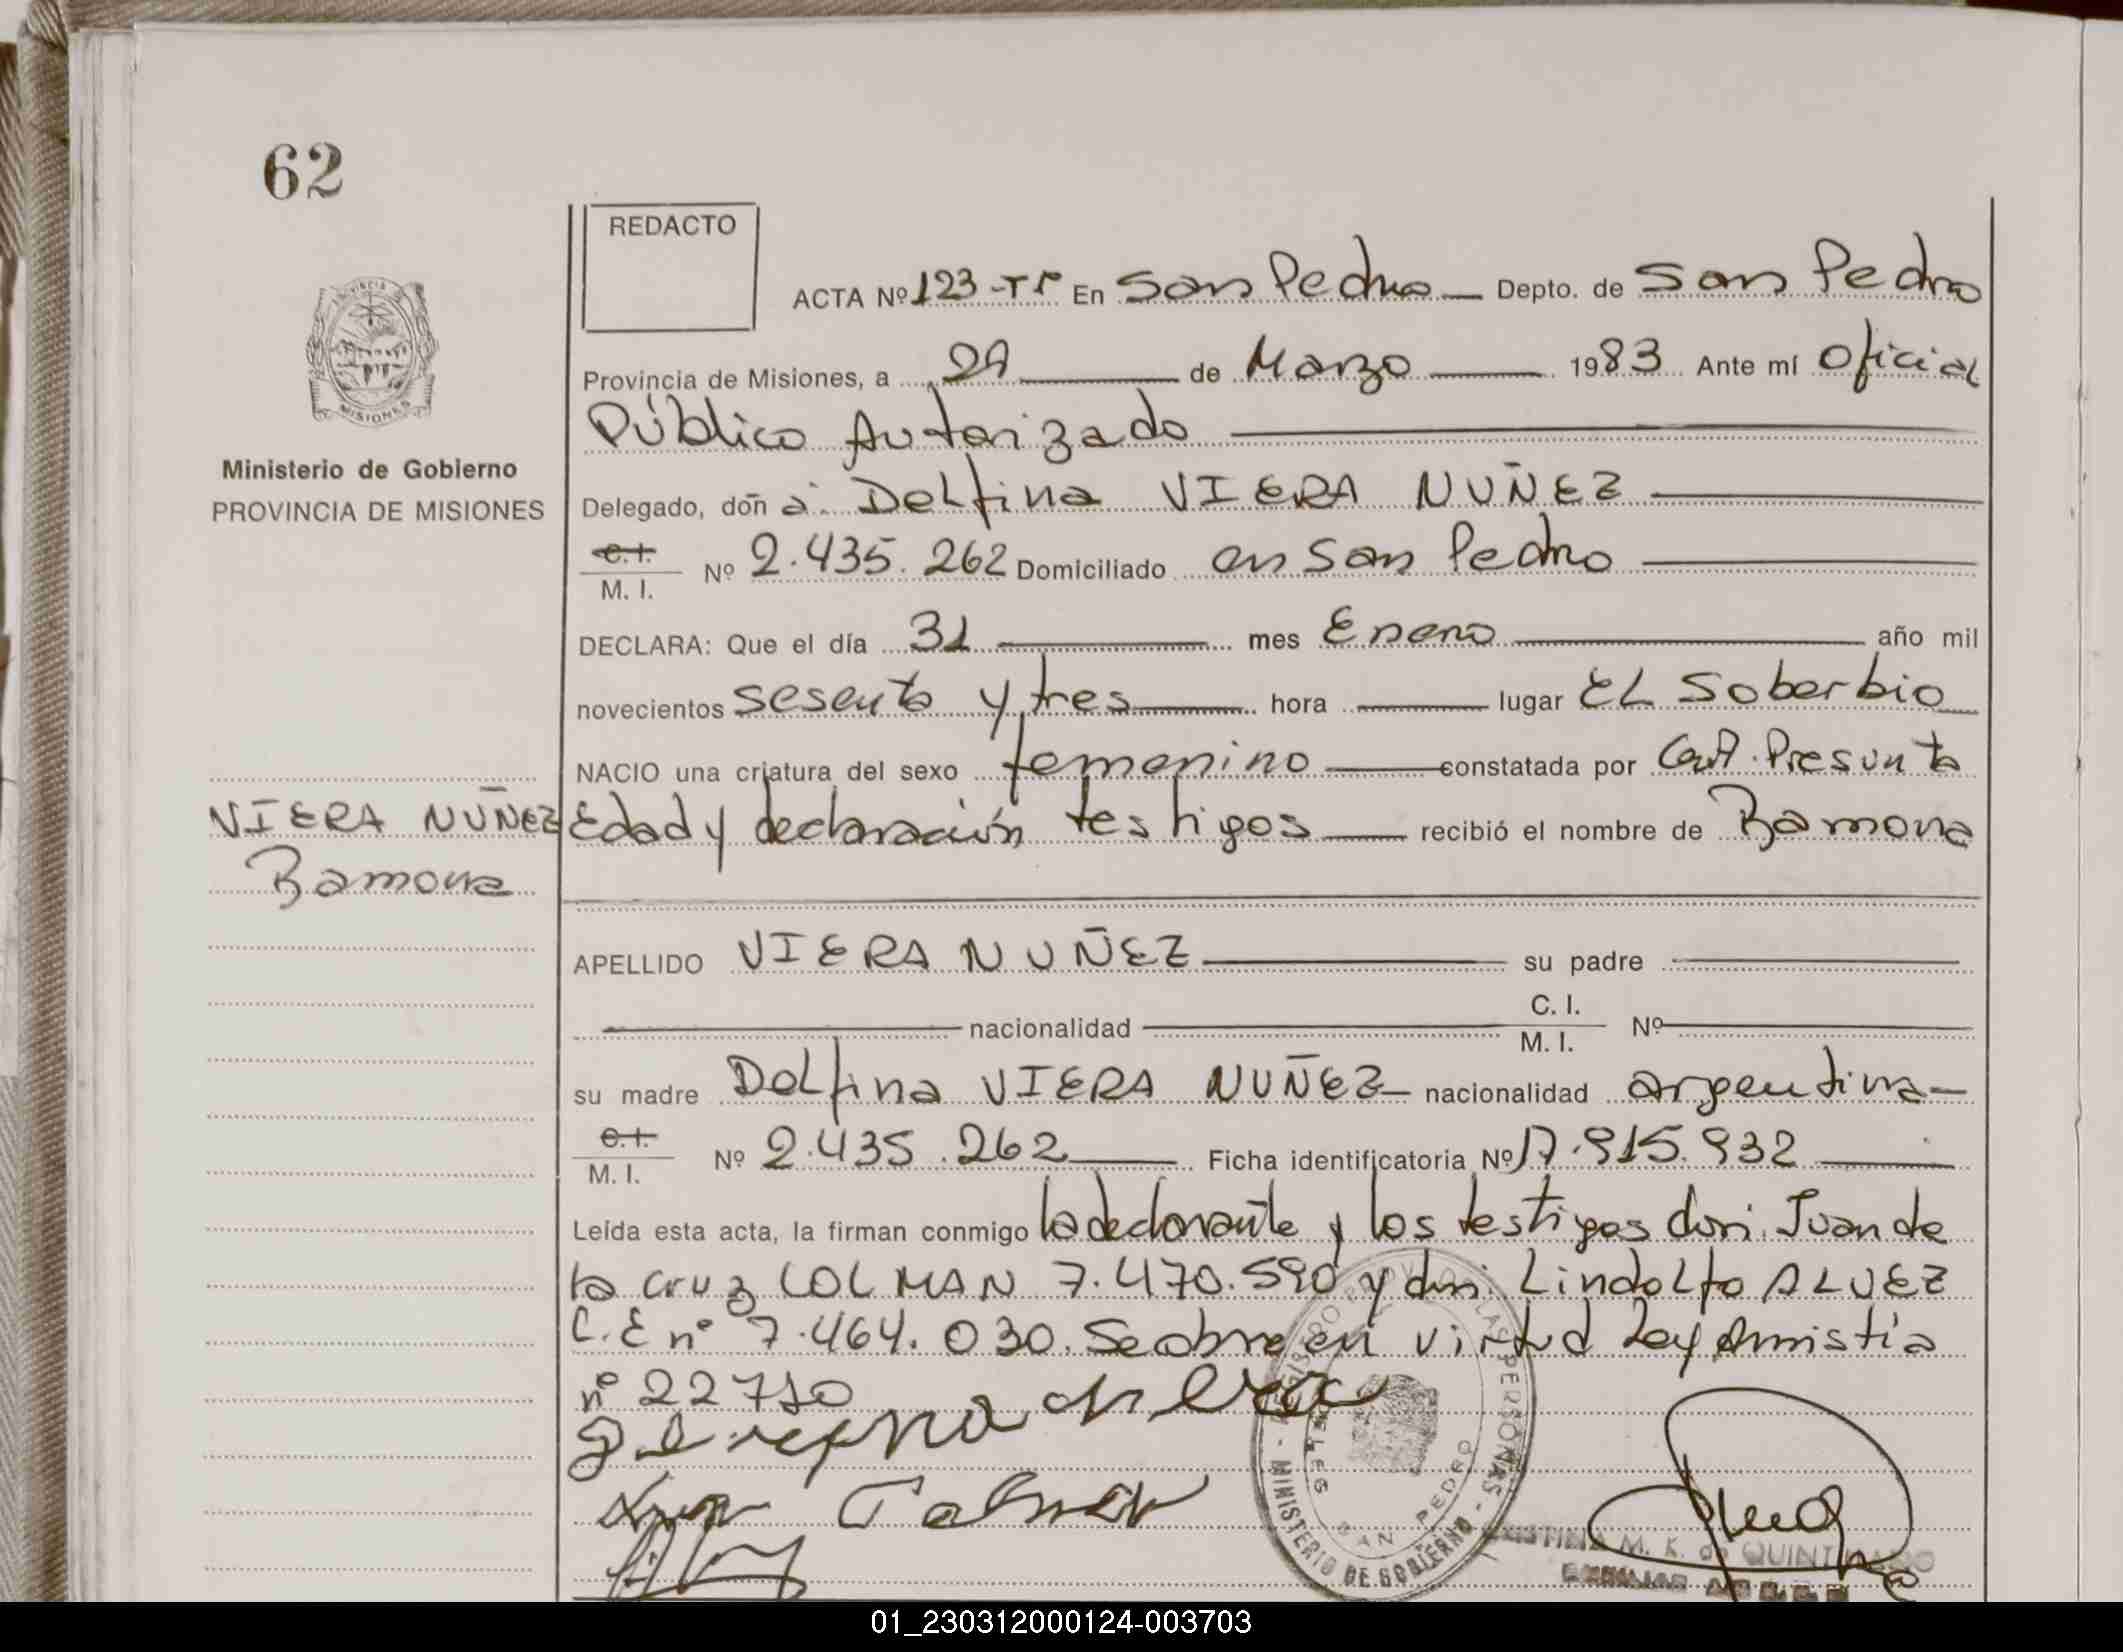 62
REDACTO
ACTA Nº 123-TP En San Pedro Depto. de San Pedro
Provincia de Misiones, a 29 de Marzo 1983 Ante mí Oficial
Público Autorizado
Ministerio de Gobierno
PROVINCIA DE MISIONES
Delegado, doñ a Delfina VIERA NUÑEZ
C.I.
M. I. Nº 2.435.262 Domiciliado en San Pedro
DECLARA: Que el día 31 mes Enero año mil
novecientos sesenta y tres hora lugar EL Soberbio
NACIO una criatura del sexo femenino constatada por Cert. Presunta
VIERA NUÑEZ Edad y declaración testigos recibió el nombre de Ramona
Ramona
APELLIDO VIERA NUÑEZ su padre
nacionalidad C. I. M. I. Nº
su madre Delfina VIERA NUÑEZ nacionalidad argentina
C.I.
M. I. Nº 2.435.262 Ficha identificatoria Nº 17.915.932
Leída esta acta, la firman conmigo la declarante y los testigos don: Juan de
la cruz COLMAN 7.470.590 y don: Lindolfo ALVEZ
C.E nº 7.464.030. Se abre en virtud Ley Amistia
nº 22710
REGISTRO PROVINCIAL DE LAS PERSONAS - MINISTERIO DE GOBIERNO
SAN PEDRO
M. K. de
01_230312000124-003703